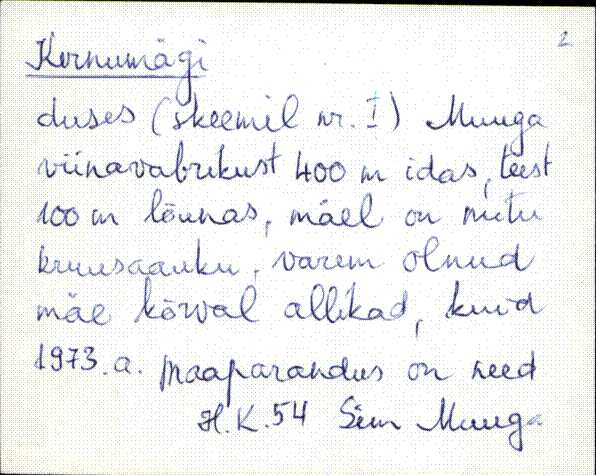 2
Kernumägi
duses (skeemil nr. I) Muuga
viinavabrikust 400 m idas, teest
100 m lõunas, mäel on mitu
kruusaauku, varem olnud
mäe kõrval allikad, kuid
1973. a. maaparandus on need
H.K.54 Sim Muuga